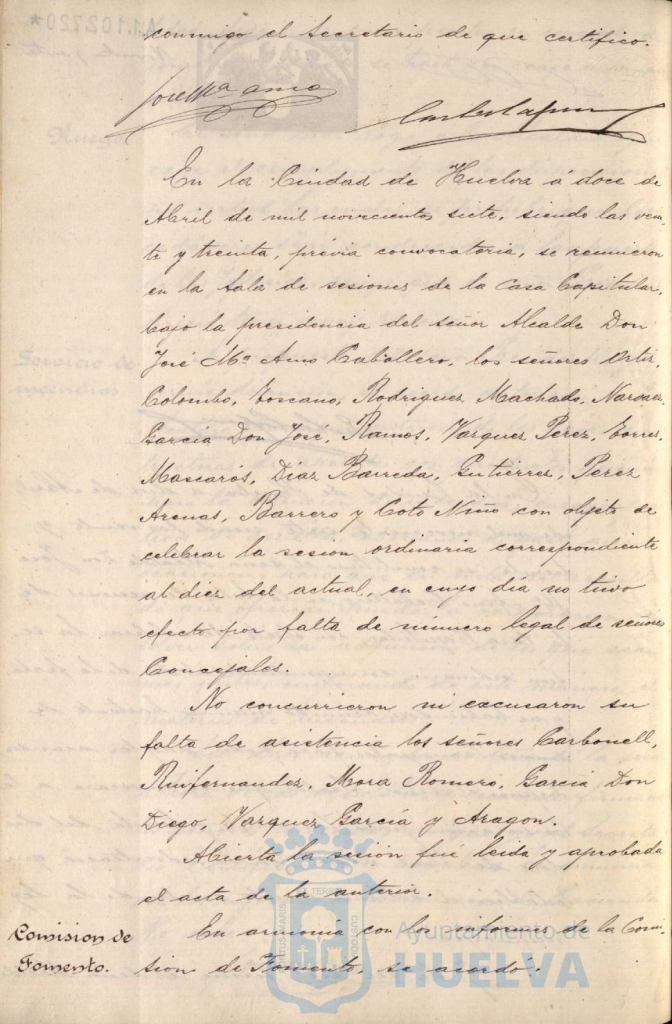 conmigo el Secretario de que certifico.
José Mª Amo
En la Ciudad de Huelva á doce de
Abril de mil novecientos siete, siendo las vein-
te y treinta, prévia convocatoria, se reunieron
en la Sala de sesiones de la Casa Capitular,
bajo la presidencia del señor Alcalde Don
José Mª Amo Caballero, los señores Ortiz,
Colombo, Toscano, Rodriguez Machado, Narvaez,
García Don José, Ramos, Vazquez Perez, Torres,
Mascarós, Diaz Barreda, Gutiérrez, Perez
Arenas, Barrero y Coto Niño con objeto de
celebrar la sesion ordinaria correspondiente
al diez del actual, en cuyo día no tuvo
efecto por falta de número legal de señores
Concejales.
No concurrieron ni excusaron su
falta de asistencia los señores Carbonell,
Ruifernandez, Mora Romero, Garcia Don
Diego, Vazquez García y Aragon.
Abierta la sesión fué leida y aprobada
el acta de la anterior.
Comision de
Fomento.
En armonía con los informes de la Comi-
sion de Fomento, se acordó:
Ayuntamiento de
HUELVA